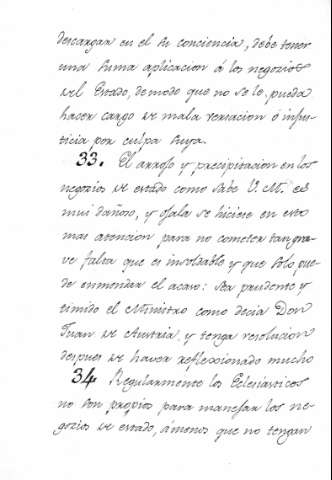 descargar en el su conciencia, debe tener
una suma aplicacion á los negocios
del Estado, de modo que no se le pueda
hacer cargo de mala versacion ó injus-
ticia por culpa suya.
33. El arrojo y precipitacion en los
negocios de estado como sabe V. M. es
mui dañoso, y ojala se hiciese en esto
mas atencion para no cometer tan gra-
ve falta que es insoldable y que solo pue-
de enmendar el acaso: sea prudente y
timido el Ministro como decia Don
Juan de Austria y tenga resolucion
despues de haver reflexionado mucho
34 Regularmente los Eclesiasticos
no son propios para manejar los ne-
gozios de estado, ámenos que no tengan